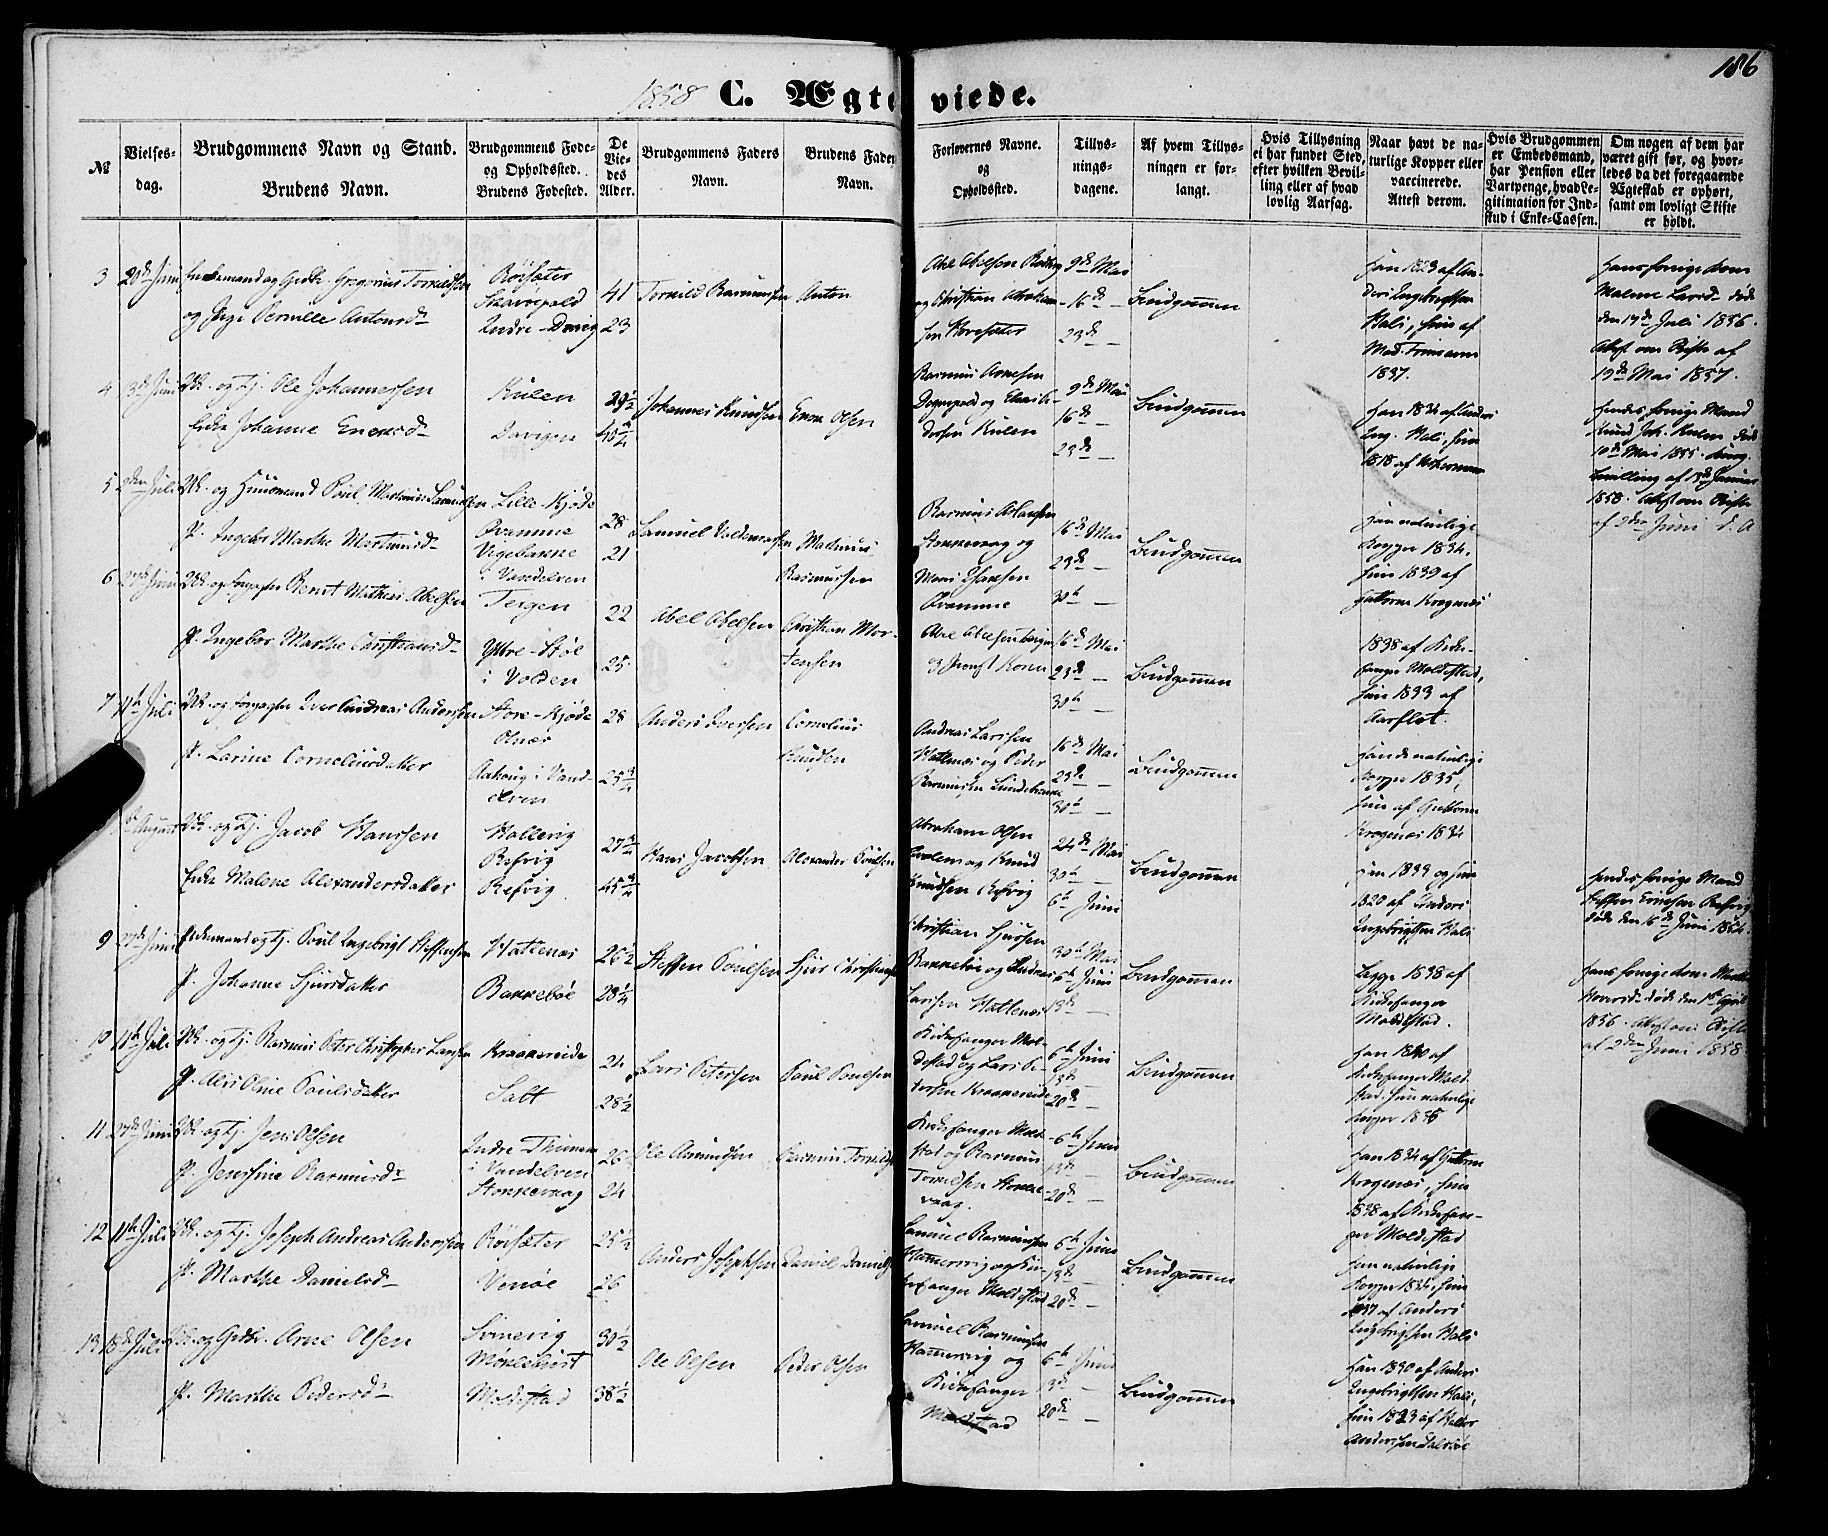 1858 C. Ægteviede.
186
№
Vielses-
dag.
Brudgommens Navn og Stand.
Brudens Navn.
Brudgommens Føde-
og Opholdssted.
Brudens Fødested.
De
Vie-
des
Alder.
Brudgommens Faders
Navn.
Brudens Faders
Navn.
Forlovernes Navne.
og
Opholdssted.
Tillys-
nings-
dagene.
Af hvem Tillys-
ningen er for-
langt.
Hvis Tillysning
ei har fundet Sted,
efter hvilken Bevil-
ling eller af hvad
lovlig Aarsag.
Naar havt de na-
turlige Kopper eller
vaccinerede.
Attest derom.
Hvis Brudgommen
er Embedsmand,
har Pension eller
Vartpenge, hvad Le-
gitimation for Ind-
skud i Enke-Cassen.
Om nogen af dem har
været gift før, og hvor-
ledes da det foregaaende
Ægteskab er ophørt,
samt om lovligt Skifte
er holdt.
3 20de Juni Enkemand og Gdbr. Gregorius Tornildsen
og Pernille Antonsdr
Rörsæter
Skaarepold
Indre-Davig
41
23
Tornild Rasmussen
Anton
og Christian Abraham-
sen
9de Mai
16de —
23de —
Brudgommen
Han 1823 af An-
ders Ingebrigtsen
Hali, hun af
1837.
Hans forrige Kone
Malene Larsdr döde
den 17de Juli 1856.
Attest om Skifte af
19de Mai 1857.
4 3de Juni Uk. og Tj. Ole Johannessen
Enke Johanne Enoksdr
Kulen
Davigen
29½
Johannes Knudsen
Enok Olsen
Rasmus Arnesen
Degnepold og
Kulen
9de Mai
16de —
23de —
Brudgommen
Han 1834 af Anders
Ing. Hali, hun
1818 af
Hendes forrige Mand
Knud Joh. Kulen döde
10de Mai 1855. Kong.
Bevilling af
1858. Attest om Skifte
af 2den Juni d. A
5 2den Juli Uk. og Huusmand Poul Martinus Samuelsen
P. Ingebor Marthe Martinusdr
Lille-Kjöde
Qvamme
i Vandelven
28
21
Samuel Valdemarsen
Martinus
Rasmussen
Rasmus
Stokkevaag og
Mons Hansen
Qvamme
16de Mai
23de —
30te —
Brudgommen
Han naturlige
Kopper 1834.
Hun 1839 af
Guttorm Kragenæs
6 27de Juni Uk. og Bernt Mathias Abelsen
P. Ingebor Marthe Christiansdr
Tergen
Ytre-Stöe
i Volden
22
25
Abel Abelsen
Christian Mor-
tensen
16de Mai
23de —
30te —
Brudgommen
1838 af Kirke-
sanger Moldestad,
hun 1833 af
Aarflot.
7 11te Juli Uk. og Iver Andreas Andersen
P. Larine Corneliusdatter
Store-Kjöde
Olnæs
Aahaug i Vand-
elven
28
25¾
Anders Iversen
Cornelius
Knudsen
Andreas Larssen
Hattenæs og Peder
Rasmussen
16de Mai
23de —
30te —
Brudgommen
Han de naturlige
Kopper 1835,
hun af Guttorm
Kragenæs 1834
August Uk. og Tj. Jacob Hanssen
Enke Malene Alexandersdatter
Hallevig
Refvig
Refvig
27¾
45¾
Hans Jacobsen
Alexander Poulsen
Abraham Olsen
og Knud
Knudsen Refvig
24de Mai
30te —
6te Juni
Brudgommen
Han 1833 og hun
1820 af Anders
Ingebrigtsen Hali
Hendes forrige Mand
Steffen Ernstsen Refvig
döde den 16de Juni 1854.
9 27de Juni Enkemand og Tj. Poul Ingebrigt Steffensen
P. Johanne Sjursdatter
Hattenæs
Bakkeböe
26½
28¼
Steffen Poulsen
Sjur Christiansen
Christian Sjursen
Bakkeböe og Andreas
Larssen Hattenæs
30te Mai
6te Juni
13de —
Brudgommen
Begge 1838 af
Kirkesanger
Moldestad.
Hans forrige Kone Marthe
döde den 1ste April
1856. Attest om Skifte
af 2den Juni 1858
10 11te Juli Uk. og Tj. Rasmus Peter Christopher Larsen
P. Alis Oline Poulsdatter
Kraakereide
Salt
24
28½
Lars Petersen
Poul Poulsen
Kirkesanger Mol-
destad og Lars Pe-
tersen Kraakereide
6te Juni
13de —
20de —
Brudgommen
Han 1840 af
Kirkesanger Molde-
stad. Hun naturlige
Kopper 1835
11 27de Juni Uk. og Tj. Jens Olsen
P. Josefine Rasmusdr
i Vandelven
Stokkevaag
26
24
Ole Amundsen
Rasmus Tornildsen
Kirkesanger Molde-
stad og Rasmus
Tornildsen Stokke-
vaag.
6te Juni
13de —
20de —
Brudgommen
Han 1834 af Guttorm
Kragenæs, hun
1838 af Kirkesan-
ger Moldestad
12 11te Juli Uk. og Tj. Joseph Andreas Anderssen
P. Marthe Danielsdr
Rörsæter
Venöe
25½
26
Anders Josephsen
Daniel Daniels
Samuel Rasmussen
Hamervig og Kir-
kesanger Moldestad
6te Juni
13de —
20de —
Brudgommen
Han naturlige
Kopper 1834, hun
1837 af Anders
Ingebrigtsen Hali
13 18de Juli Uk. og Gdbr. Arne Olsen
P. Marthe Pedersdr
Svinevig
Moldestad
30½
38½
Ole Olsen
Peder Olsen
Samuel Rasmussen
Hamervig og
Kirkesanger
Moldestad
6te Juni
13de —
20de —
Brudgommen
Han 1830 af Anders
Ingebrigtsen Hali,
hun 1823 af